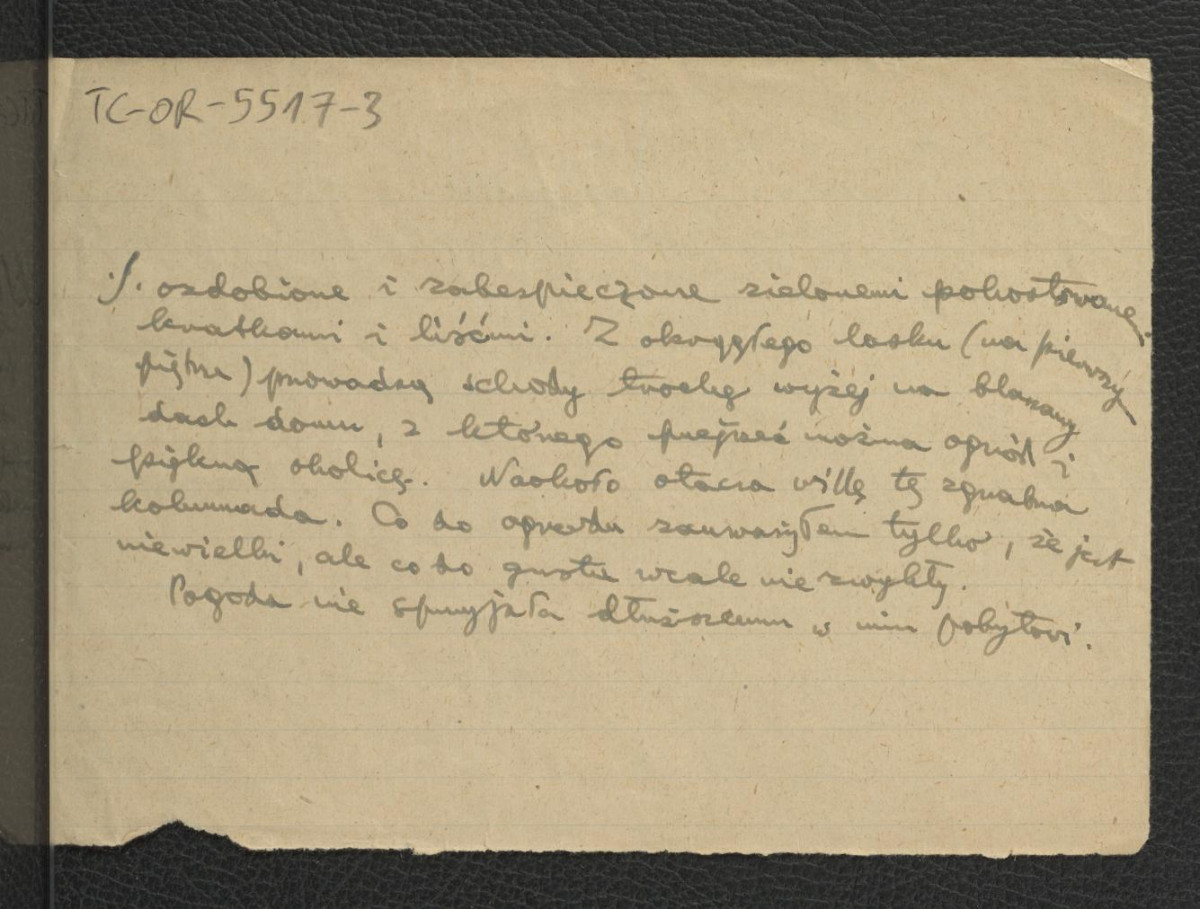 TC-OR-5517-3
./. ozdobione i zabespieczone zielonemi pokostowanemi
kratkami i liśćmi. Z okrągłego
piętra) prowadzą schody trochę wyżej na blaszany
dach domu, z którego przejrzeć można ogród i
piękną okolicę. Naokoło otacza willę tę zgrabna
kolumnada. Co do ogrodu zauważyłem tylko, że jest
niewielki, ale co do gustu wcale nie zwykły.
Pogoda nie sprzyjała dłuższemu w nim pobytowi.